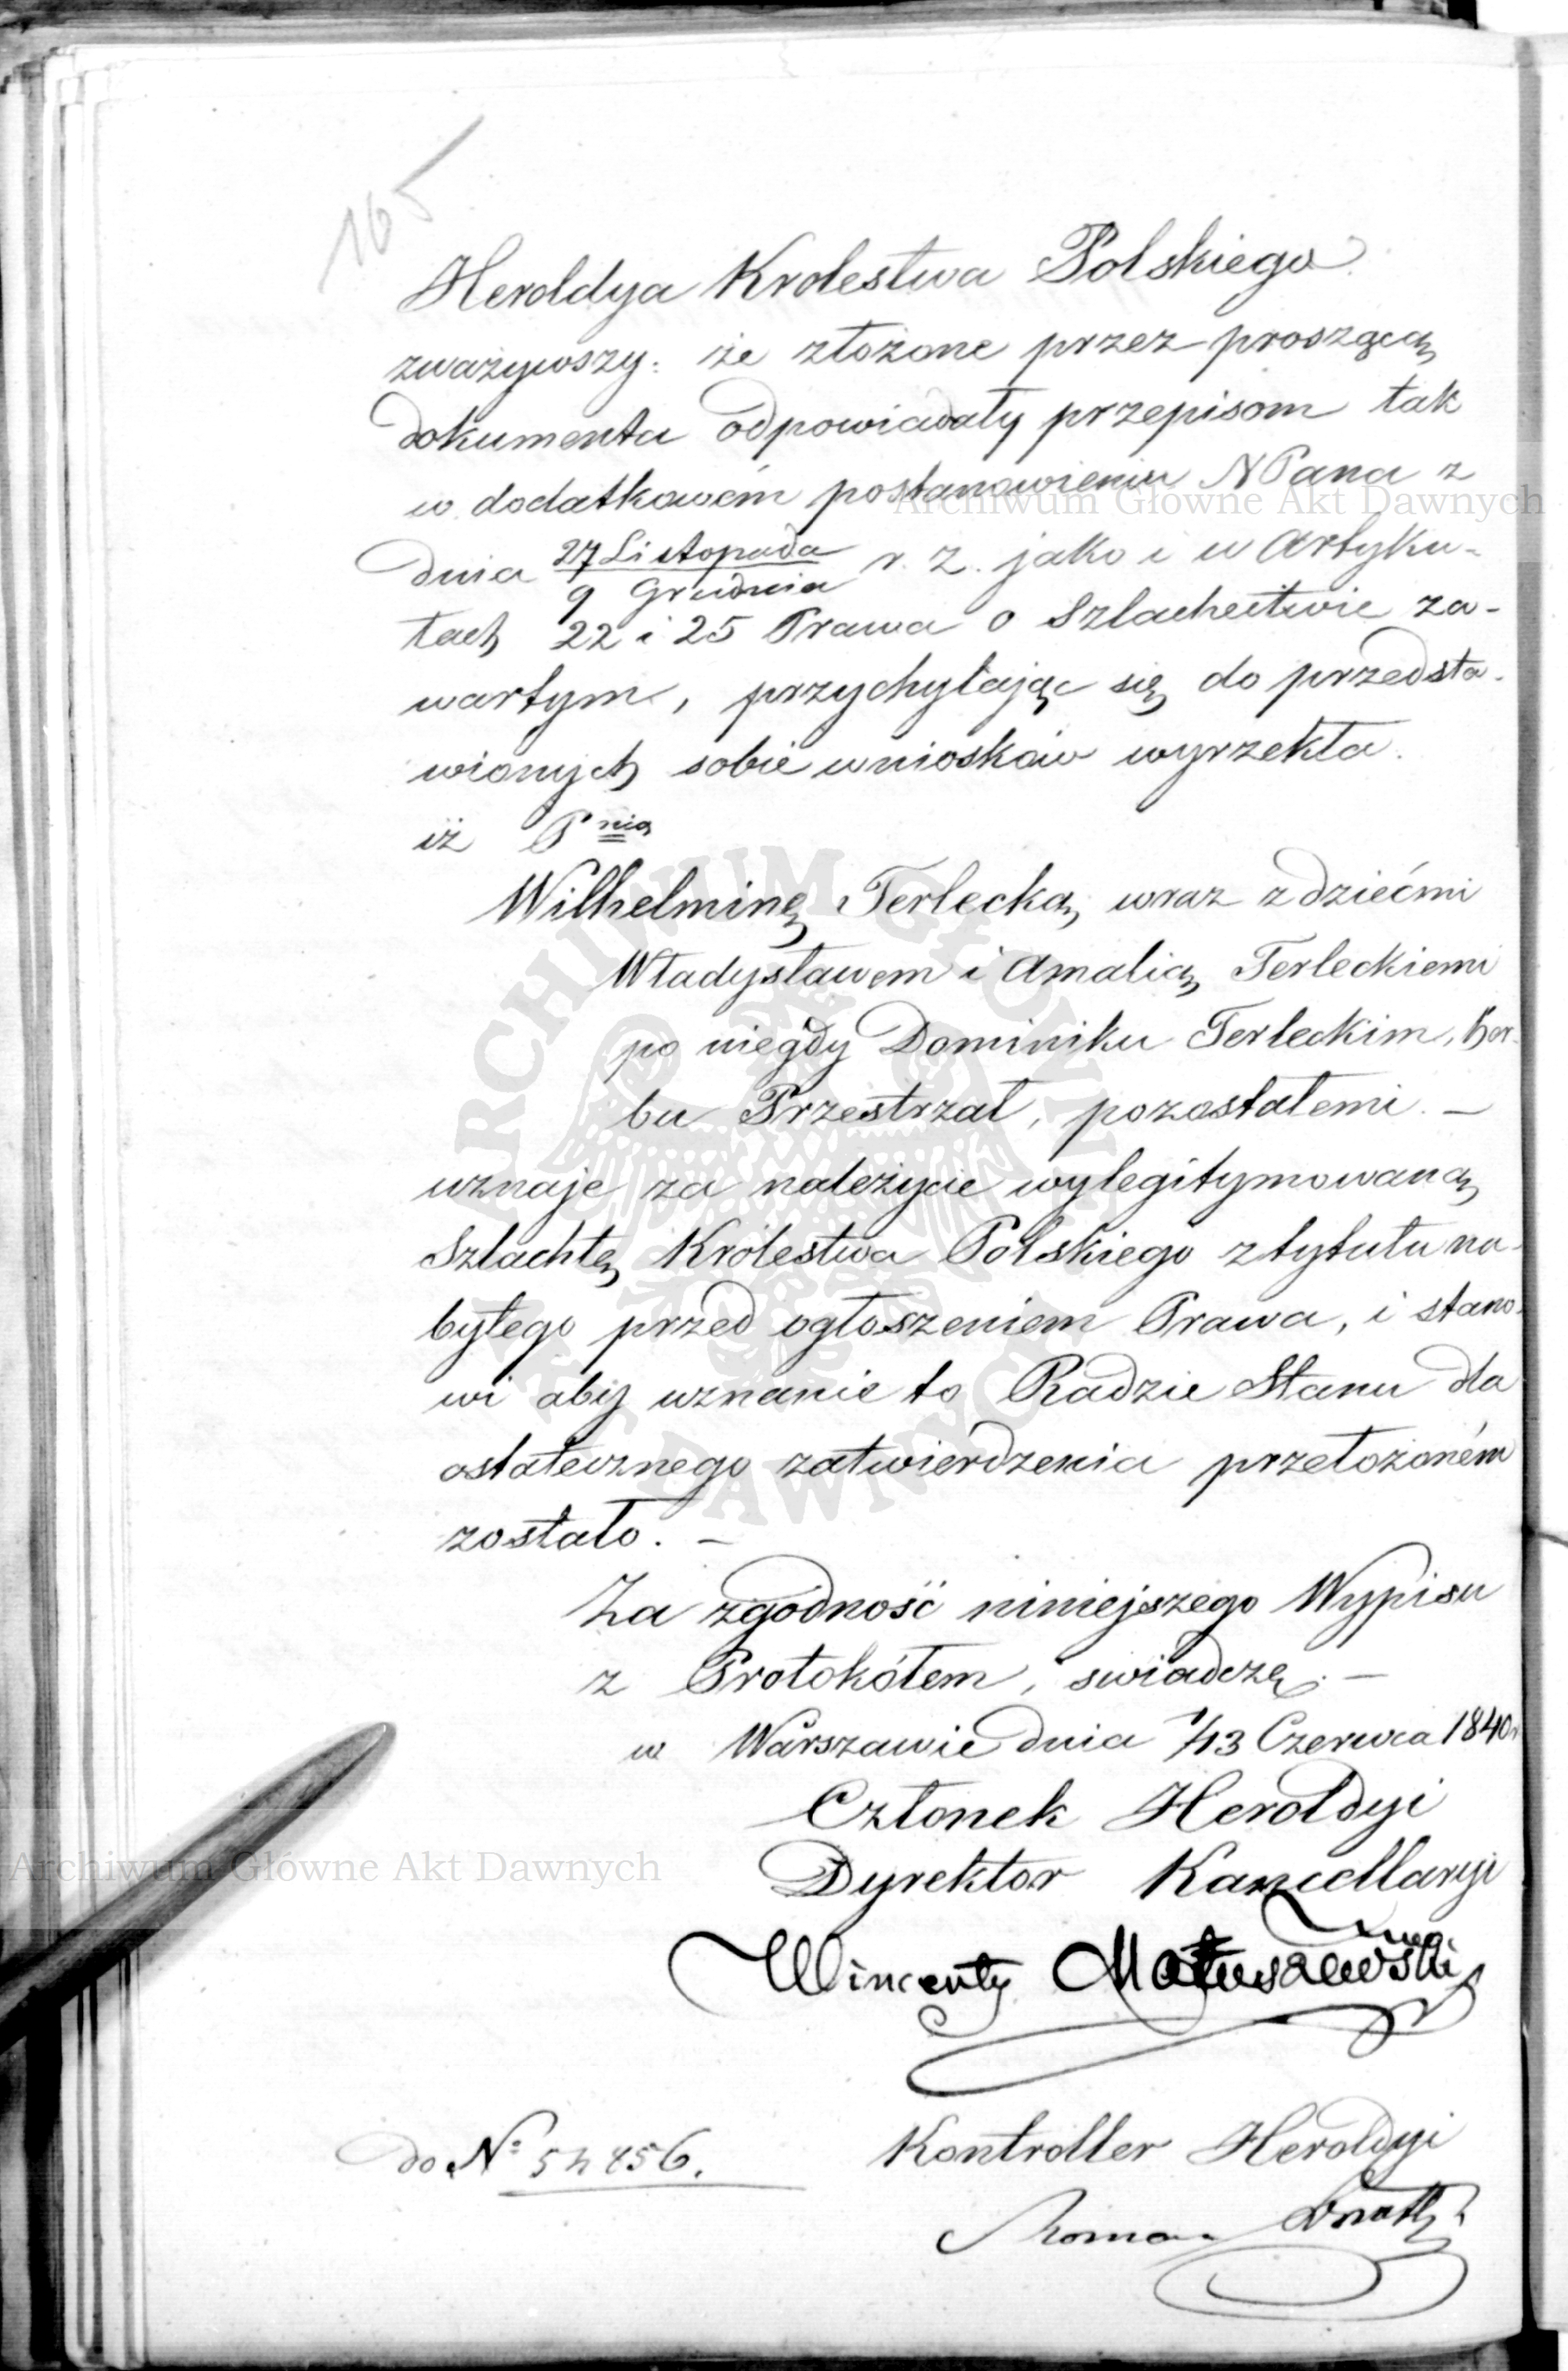 165
Heroldya Krolestwa Polskiego
zważywszy: że złożone przez proszącą
dokumenta odpowiadały przepisom tak
w dodatkowém postanowieniu NPana z
dnia 27 Listopada / 9 Grudnia r. z. jako i w Artyku-
łach 22 i 25 Prawa o Szlachectwie za-
wartym, przychylając się do przedsta-
wionych sobie wniosków wyrzekła.
iż Pnią
Wilhelminę Terlecką, wraz z dziećmi
Władysławem i Amalią Terleckiemi
po niegdy Dominiku Terleckim, her-
bu Przestrzał, pozostałemi. —
uznaje za należycie wylegitymowaną
Szlachtę Królestwa Polskiego z tytułu na-
bytego przed ogłoszeniem Prawa, i stano-
wi aby uznanie to Radzie Stanu dla
ostatecznego zatwierdzenia przełożoném
zostało. —
Za zgodność niniejszego Wypisu
z Protokółem, swiadczę. —
w Warszawie dnia 1/13 Czerwca 1840r
Członek Heroldyi
Dyrektor Kancellaryi
Wincenty Matuszewski
do No 54856.
Kontroller Heroldyi
Roman
Archiwum Główne Akt Dawnych
Archiwum Główne Akt Dawnych
ARCHIWUM GŁÓWNE AKT DAWNYCH